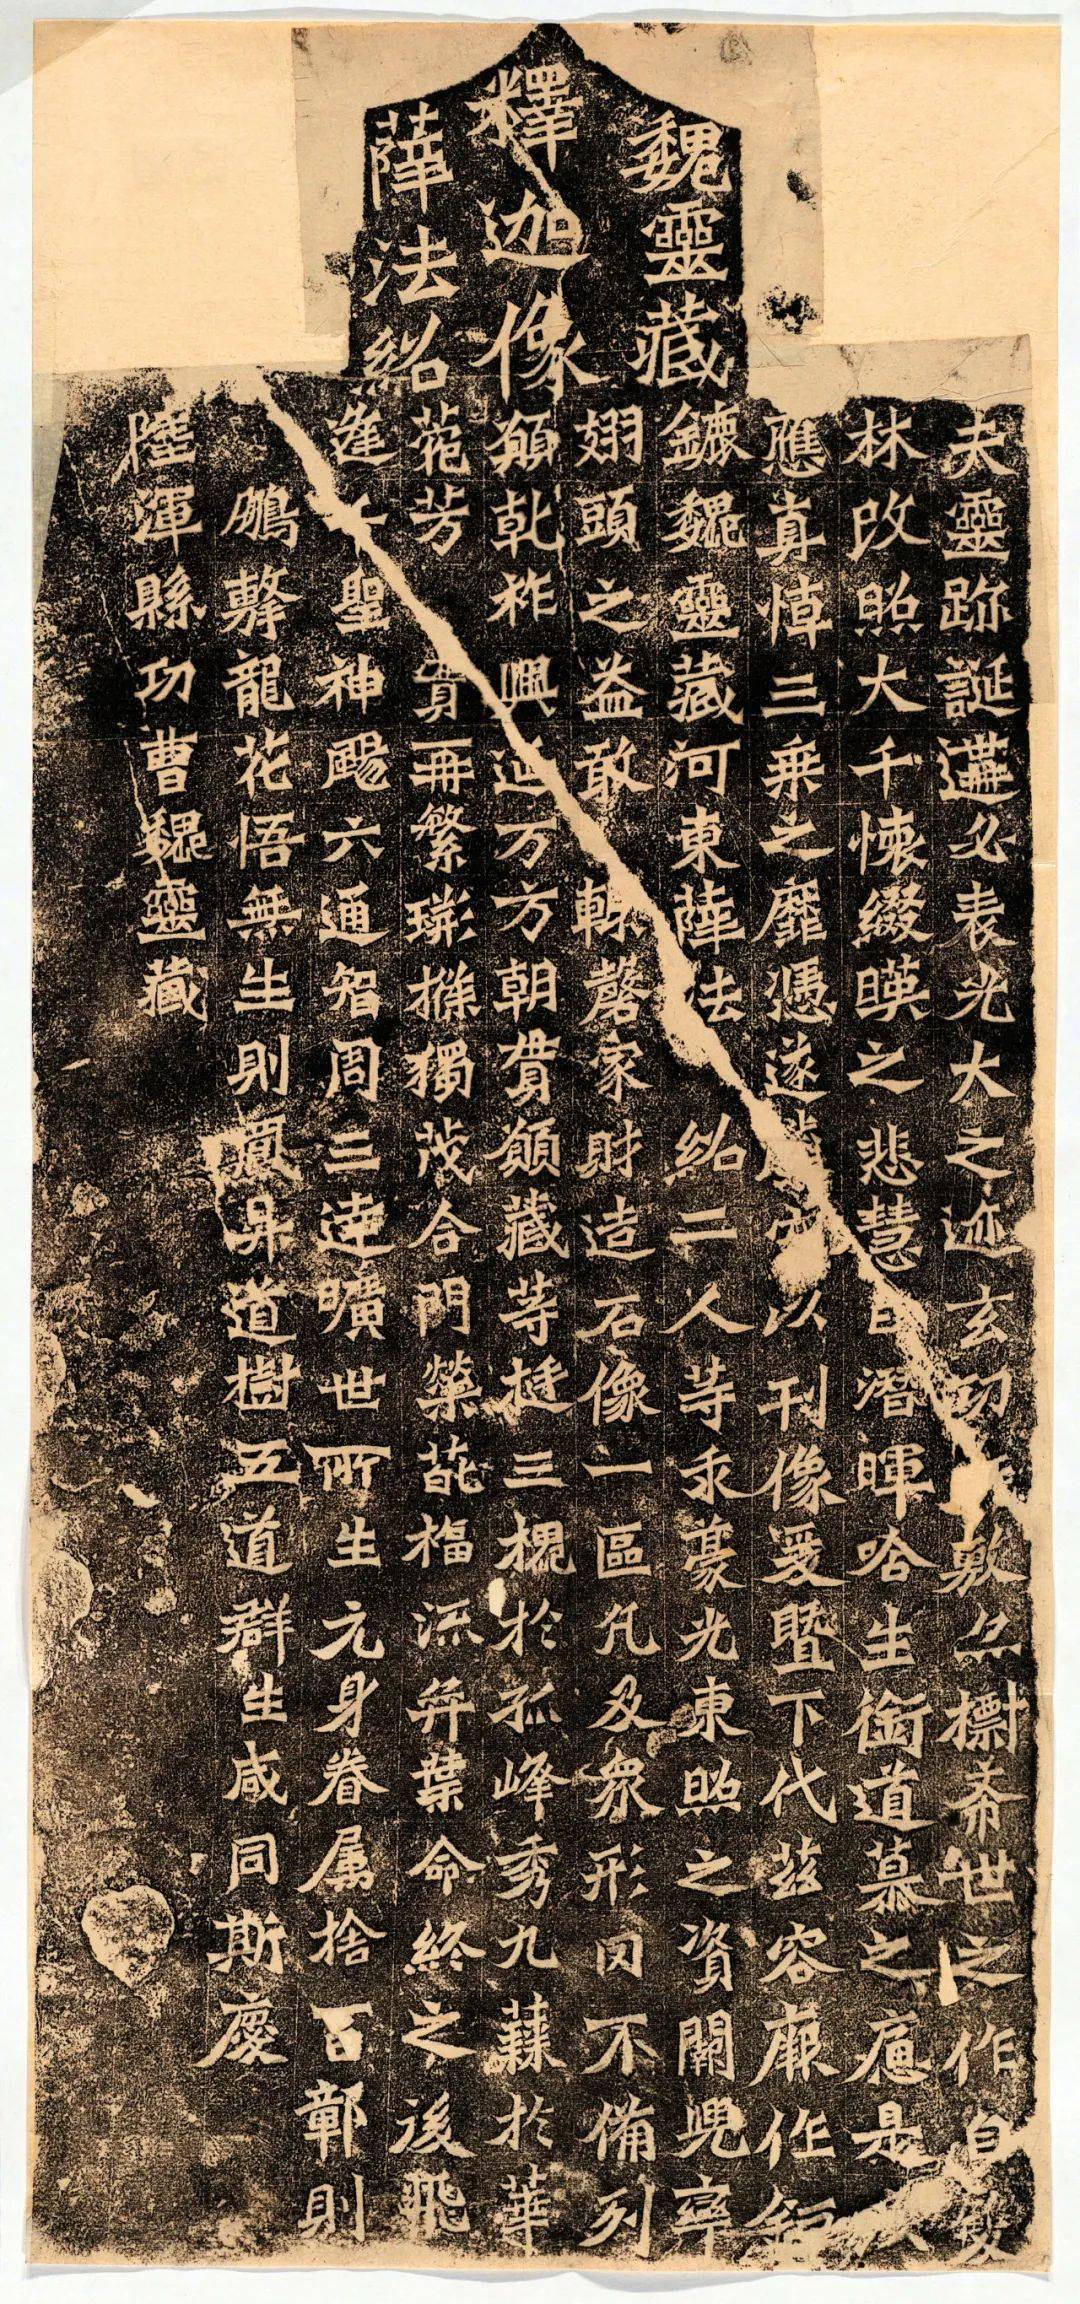 魏靈藏
釋迦像
薛法紹
夫靈跡誕遘必表光大之迹玄功敷亦標希世之作自雙
林改照大千懷綴暎之悲慧日潛暉唅生銜道慕之是
應真悼三乘之靡憑遂以刊像爰暨下代茲容厥作鉅
鏕魏靈藏河東薛法紹二人等求豪光東照之資闕兜率
翅頭之益敢輒罄家財造石像一區凡及眾形罔不備列
願乾祚興延万方朝貫願藏等挺三槐於孤峰秀九蕀於華
菀芳實再繁條獨茂合門榮葩福流弈葉命終之後飛
逢千聖神颺六通智周三達曠世所生元身眷屬捨百鄣則
鵬擊龍花悟無生則鳳昇道樹五道群生咸同斯慶
陸渾縣功曹魏靈藏